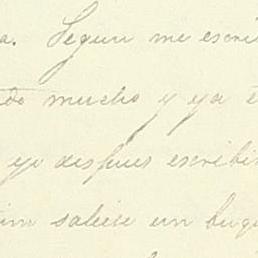 a. Segun me escri
do mucho y ya e
yo despues escribi
saliese un buq